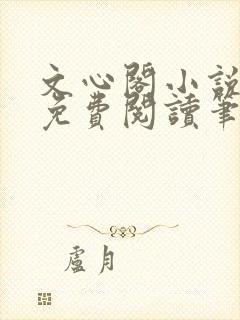 文心閣小說
免費閱讀筆
盧月